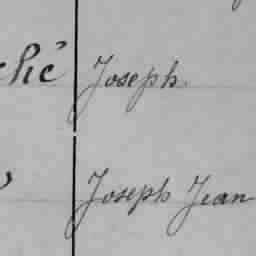 Joseph.
Joseph Jean